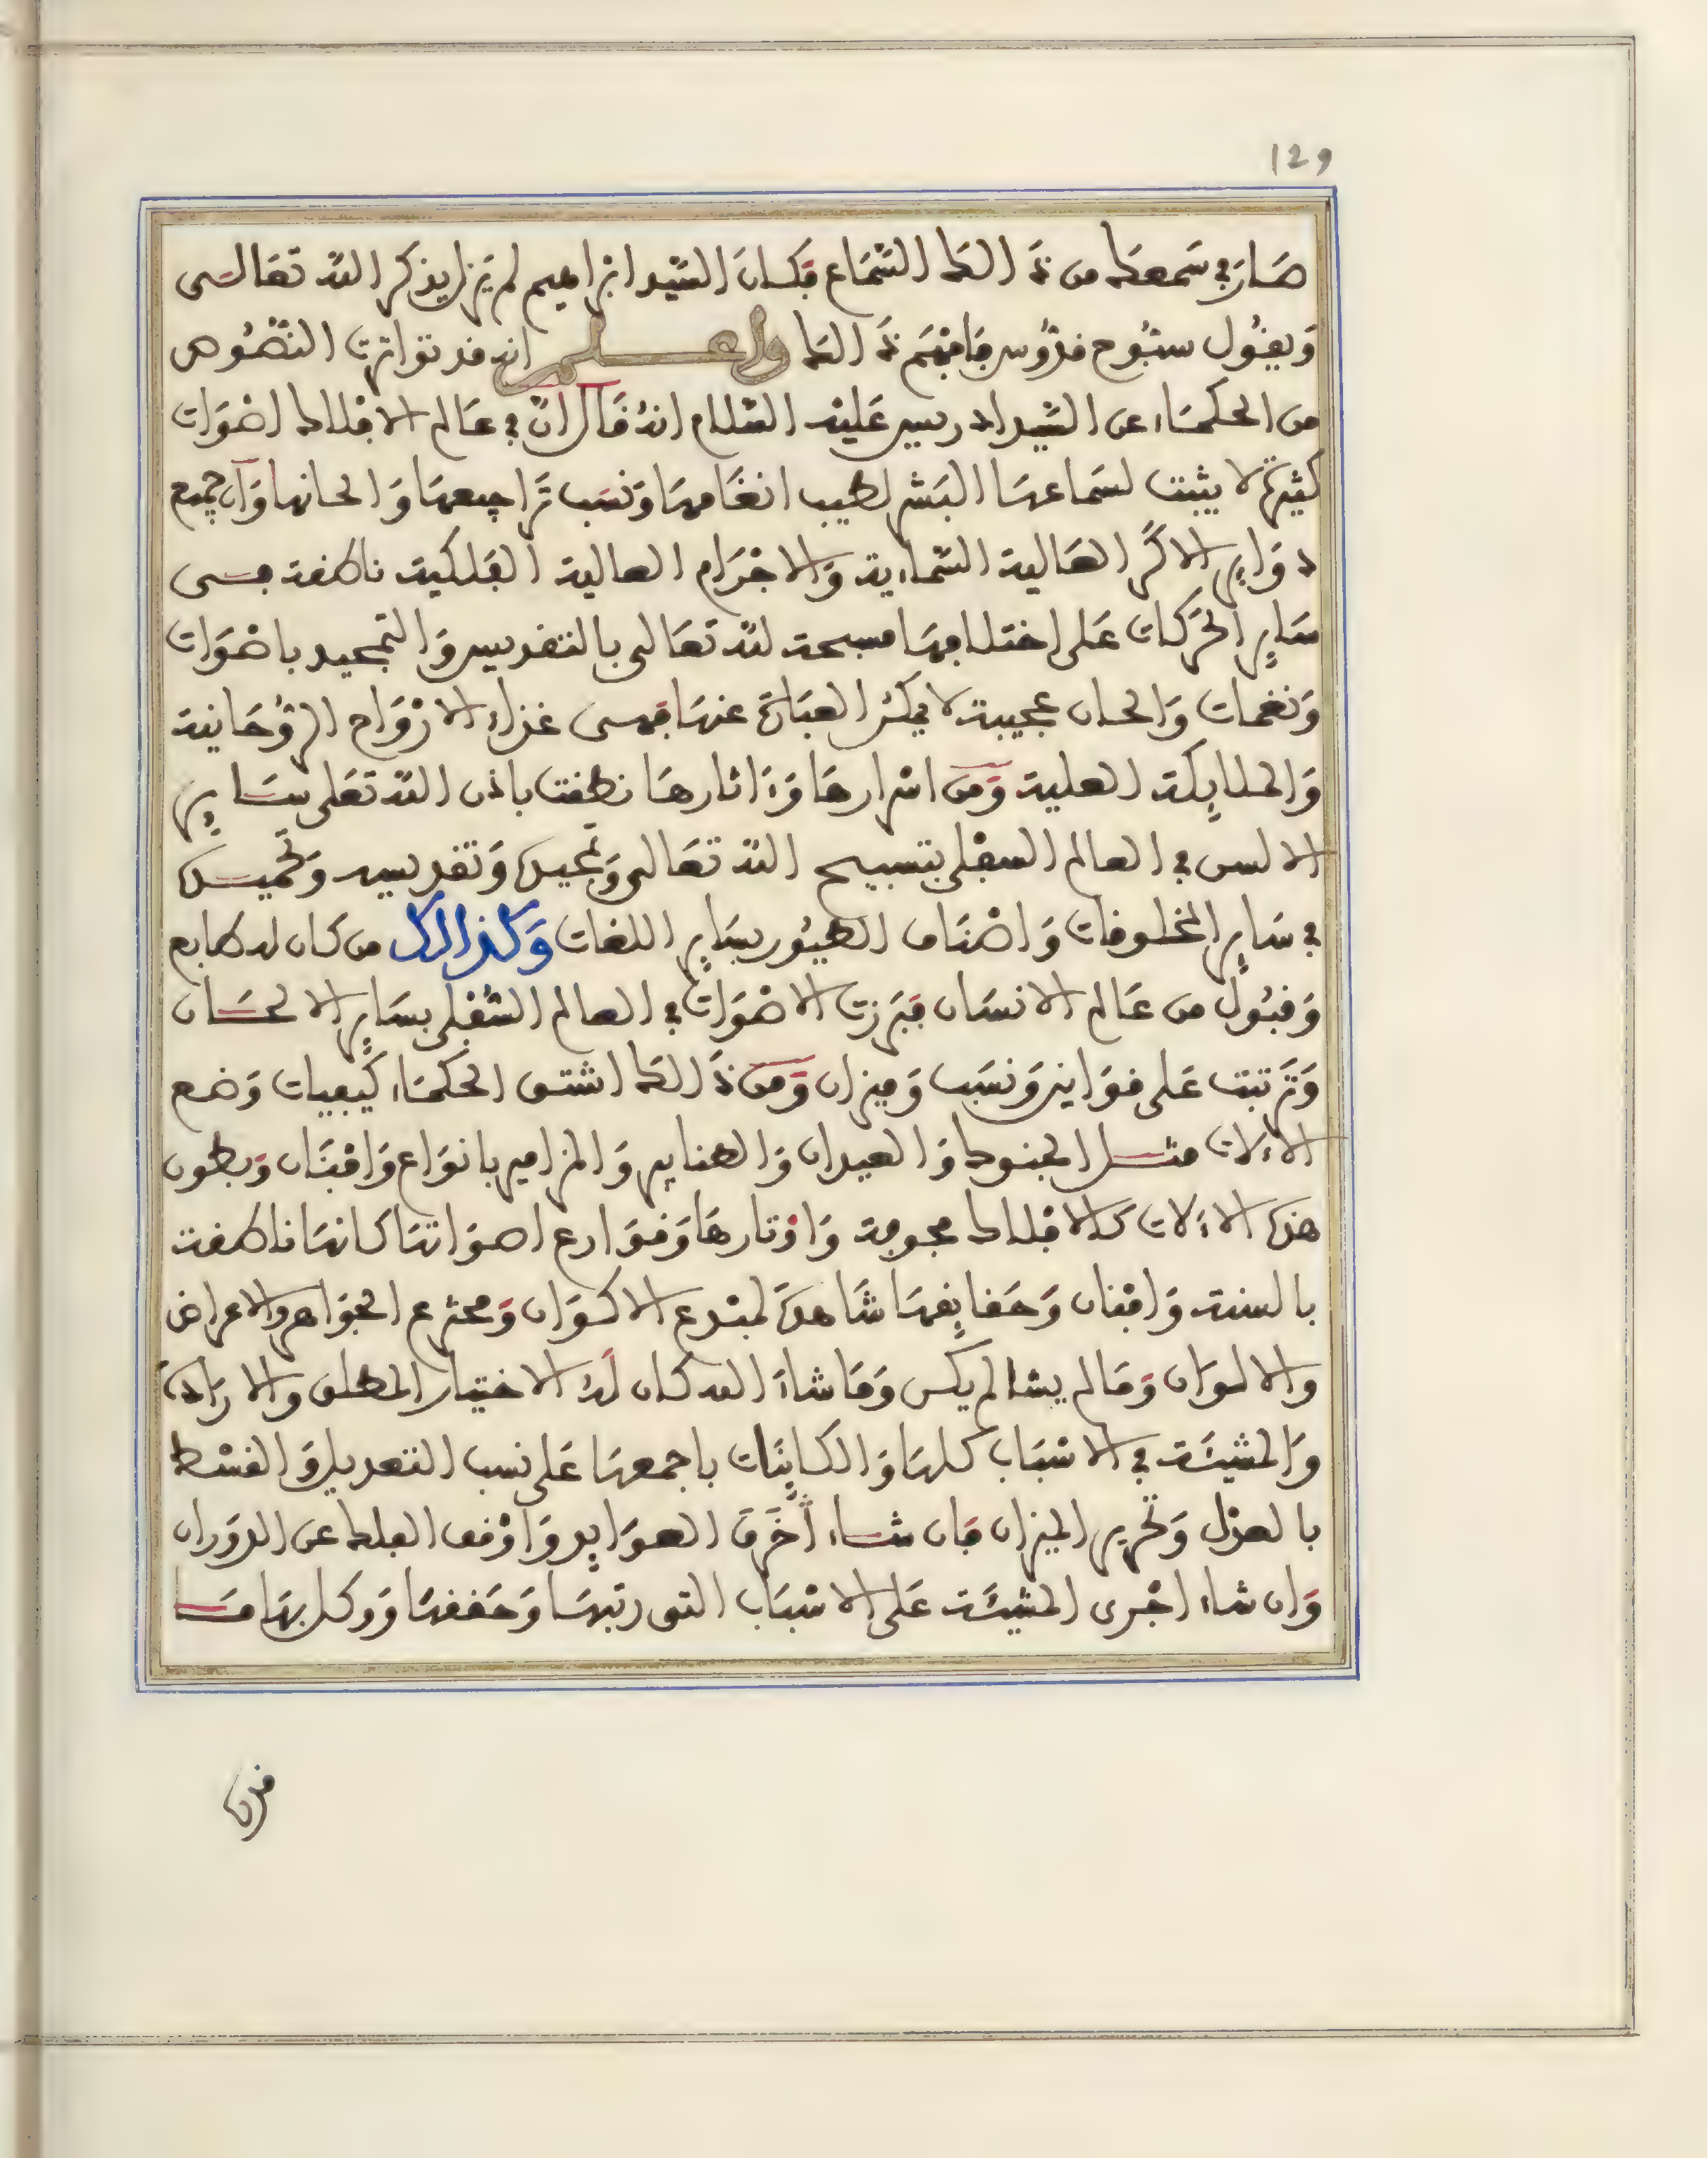 129
صار في سمعك من ذالك السماع فكان السيد ابراهيم لم يزل يذكر الله تعالى
ويقول سبوح قدوس فافهم ذالك واعلم انه قد تواترت النصوص
من الحكماء عن السيد ادريس عليه السلام انه قال ان في عالم الافلاك اصوات
كثيرة لا يثبت لسماعها البشر لطيب انغامها ونسب تراجيعها والحانها وان جميع
دواير الاكر العالية السماءية والاجرام العالية الفلكية ناطقة فى
ساير الحركات على اختلافها مسبحة لله تعالى بالتقديس والتمجيد باصوات
ونغمات والحان عجيبة لا يمكن العبارة عنها فهى غذاء الارواح الروحانية
والملايكة العلية ومن اسرارها وءاثارها نطقت باذن الله تعلى ساير
الالسن في العالم السفلى بتسبيح الله تعالى وتمجيده وتقديسه وتحميده
في ساير المخلوقات واصناف الطيور بساير اللغات وكذالك من كان له طابع
وقبول من عالم الانسان فبرزت الاصوات في العالم السفلى بساير الالحان
وترتبت على قوانين ونسب وميزان ومن ذالك اشتق الحكماء كيفيات وضع
الاءلات مثل الجنوك والعيدان والطنابير والمزامير بانواع وافنان وبطون
هذه الاءلات كالافلاك مجوفة واوتارها وقوارع اصواتها كانها ناطقة
بالسنة وافنان وحقايقها شاهدة لمبدع الاكوان ومخترع الجواهر والاعراض
والالوان وما لم يشا لم يكن وما شاء الله كان له الاختيار المطلق والارادة
والمشيئة في الاسباب كلها والكاينات باجمعها على نسب التعديل والقسط
بالعدل وتحرير الميزان فان شاء اخرق العوايد واوقف الفلك عن الدوران
وان شاء اجرى المشيئة على الاسباب التى رتبها وحققها ووكل بها مـا